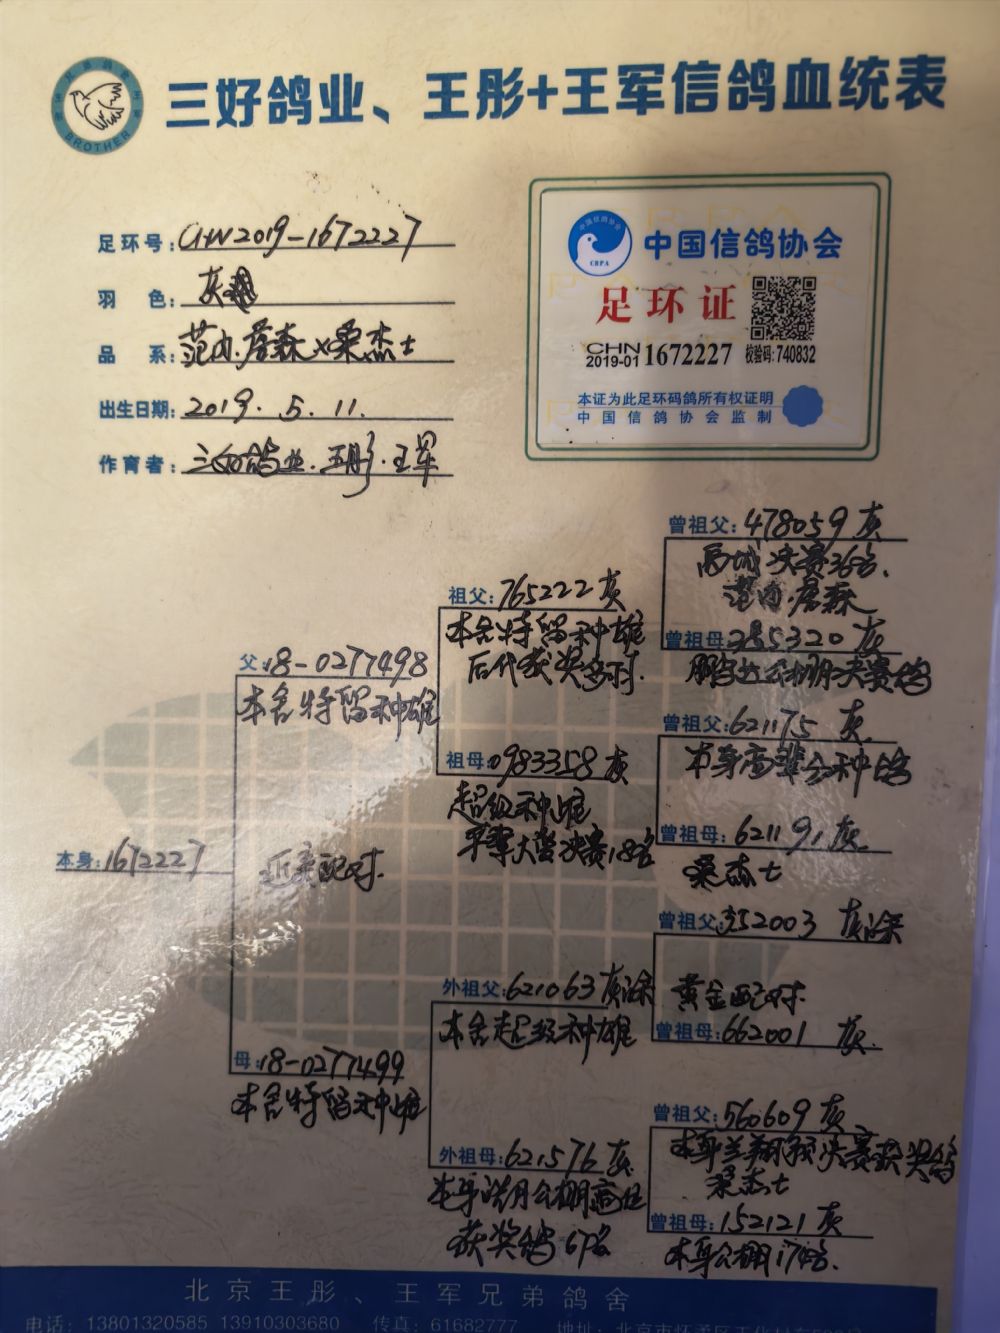 BROTHER
三好鸽业、王彤+王军信鸽血统表
足环号:CHN2019-1672227
羽 色:灰
品 系:范内·詹森×桑杰士
出生日期:2019.5.11.
作育者:三好鸽业.王彤.王军
中国信鸽协会
CRPA
中国信鸽协会
足环证
CHN
2019-01 1672227 校验码:740832
本证为此足环码鸽所有权证明
中国信鸽协会监制
曾祖父:478059 灰
决赛36名.
范内·詹森
曾祖母:285320 灰
公棚决赛鸽
祖父:765222 灰
本舍特留种雄
后代获奖多对.
父:18-0277498
本舍特留种雄
曾祖父:621175 灰
本身种鸽
祖母:0983358 灰
超级种雌
决赛18名
曾祖母:621191 灰
桑杰士
本身:1672227
近亲配对.
曾祖父:352003 灰深
黄金配对.
曾祖母:662001 灰.
外祖父:621063 灰深
本舍超级种雄
母:18-0277499
本舍特留种雌
曾祖父:560609 灰
本身兰翔预决赛获奖鸽
桑杰士
外祖母:621576 灰
本身公棚
获奖鸽67名
曾祖母:152121 灰
本身公棚174名.
北京王彤、王军兄弟鸽舍
电话: 13801320585 13910303680 传真: 61682777 地址: 北京市怀柔区